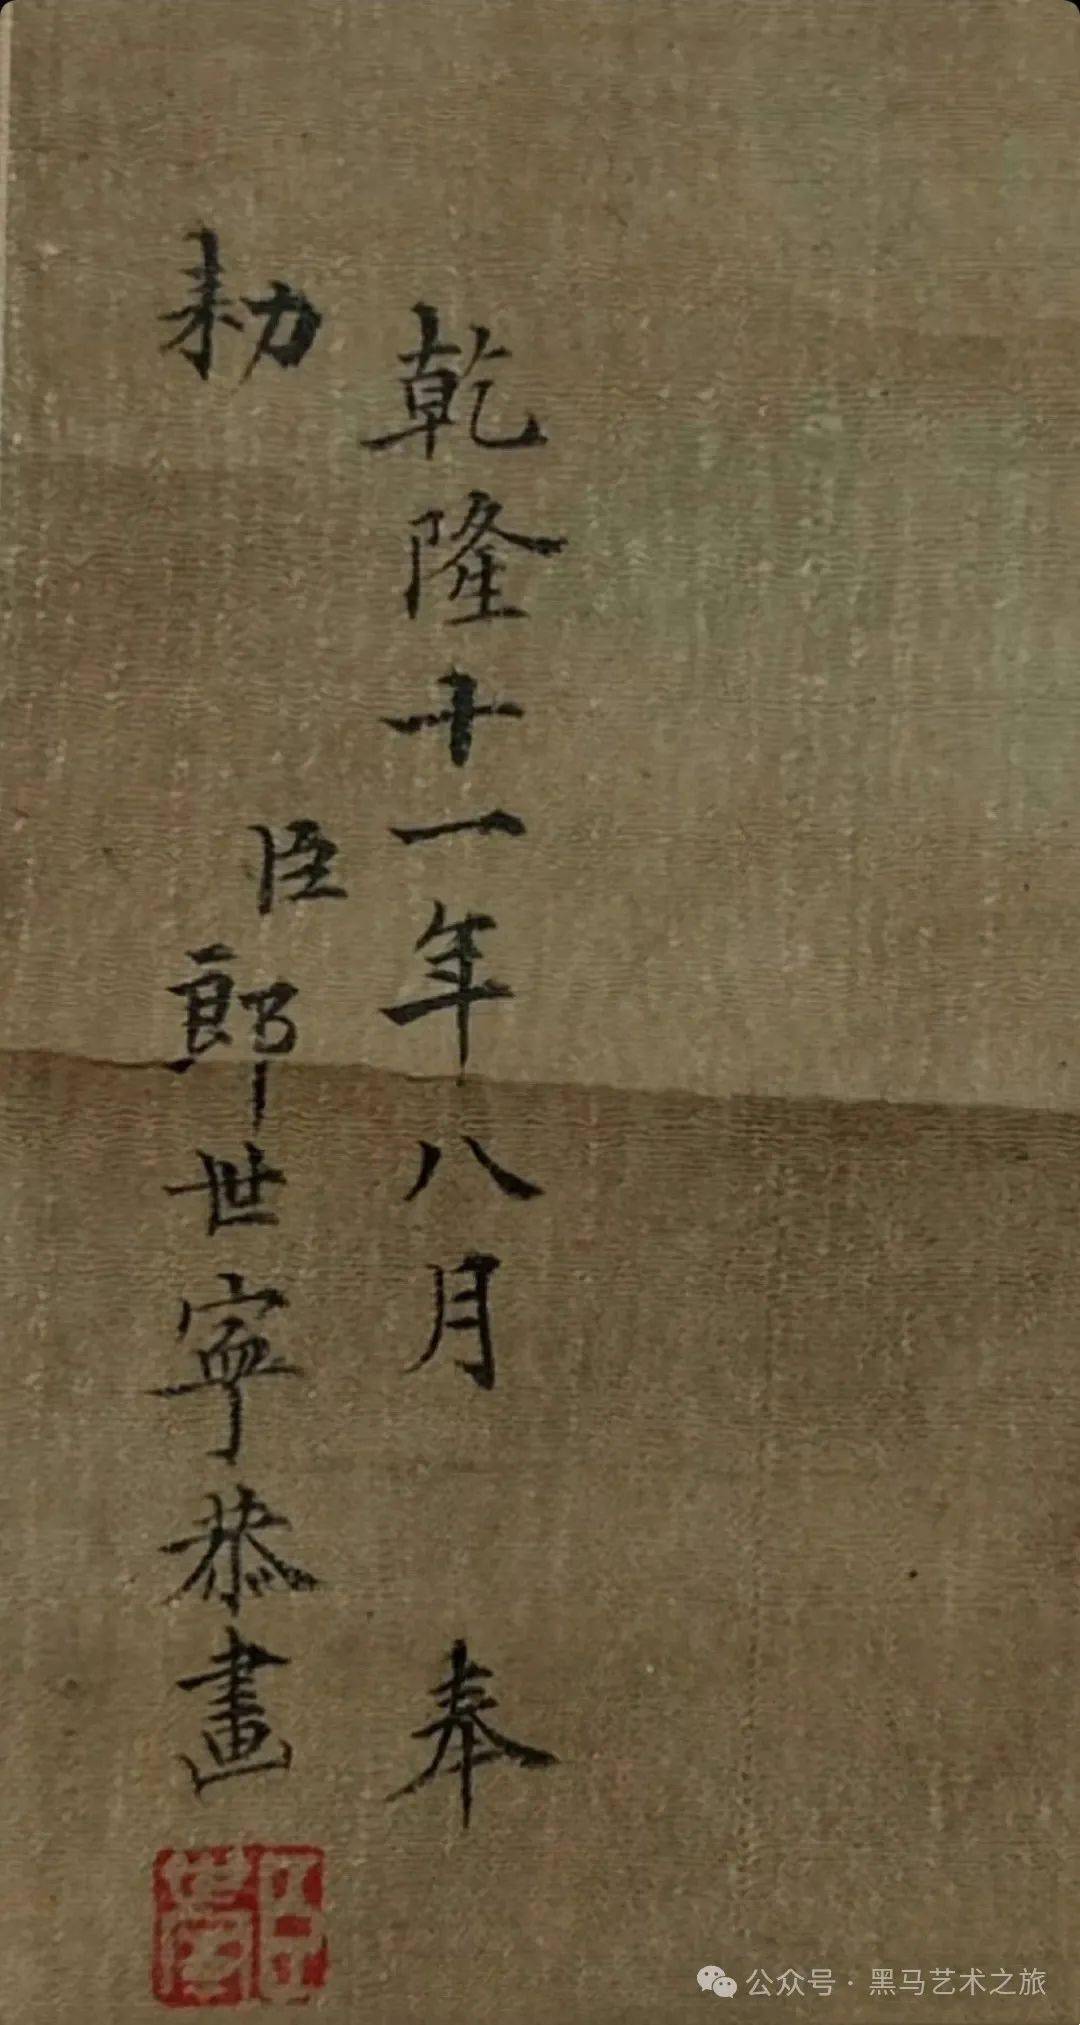 乾隆十一年八月奉
勅臣郎世寧恭畫
公众号·黑马艺术之旅